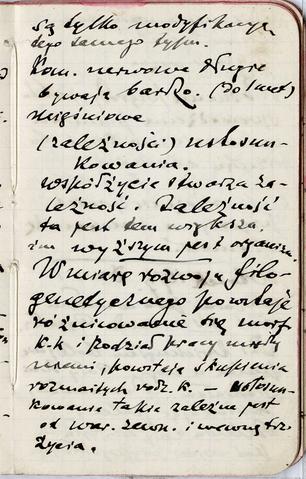 są tylko modyfikacją
tego samego typu.
Kom. nerwowe długie
bywają bardzo. (do 1 met)
mięśniowe
(zależności) ustosun-
kowania.
współżycie stwarza za-
leżność. Zależność
ta jest tem większa,
im wyższym jest organizm.
W miarę rozwoju filo-
genetycznego powstaje
różnicowanie się morf.
k.k i podział pracy między
niemi, powstają skupienia
rozmaitych rodz. k. — ustosun-
kowanie takie zależne jest
od war. zewn. i wewnętrz.
życia.